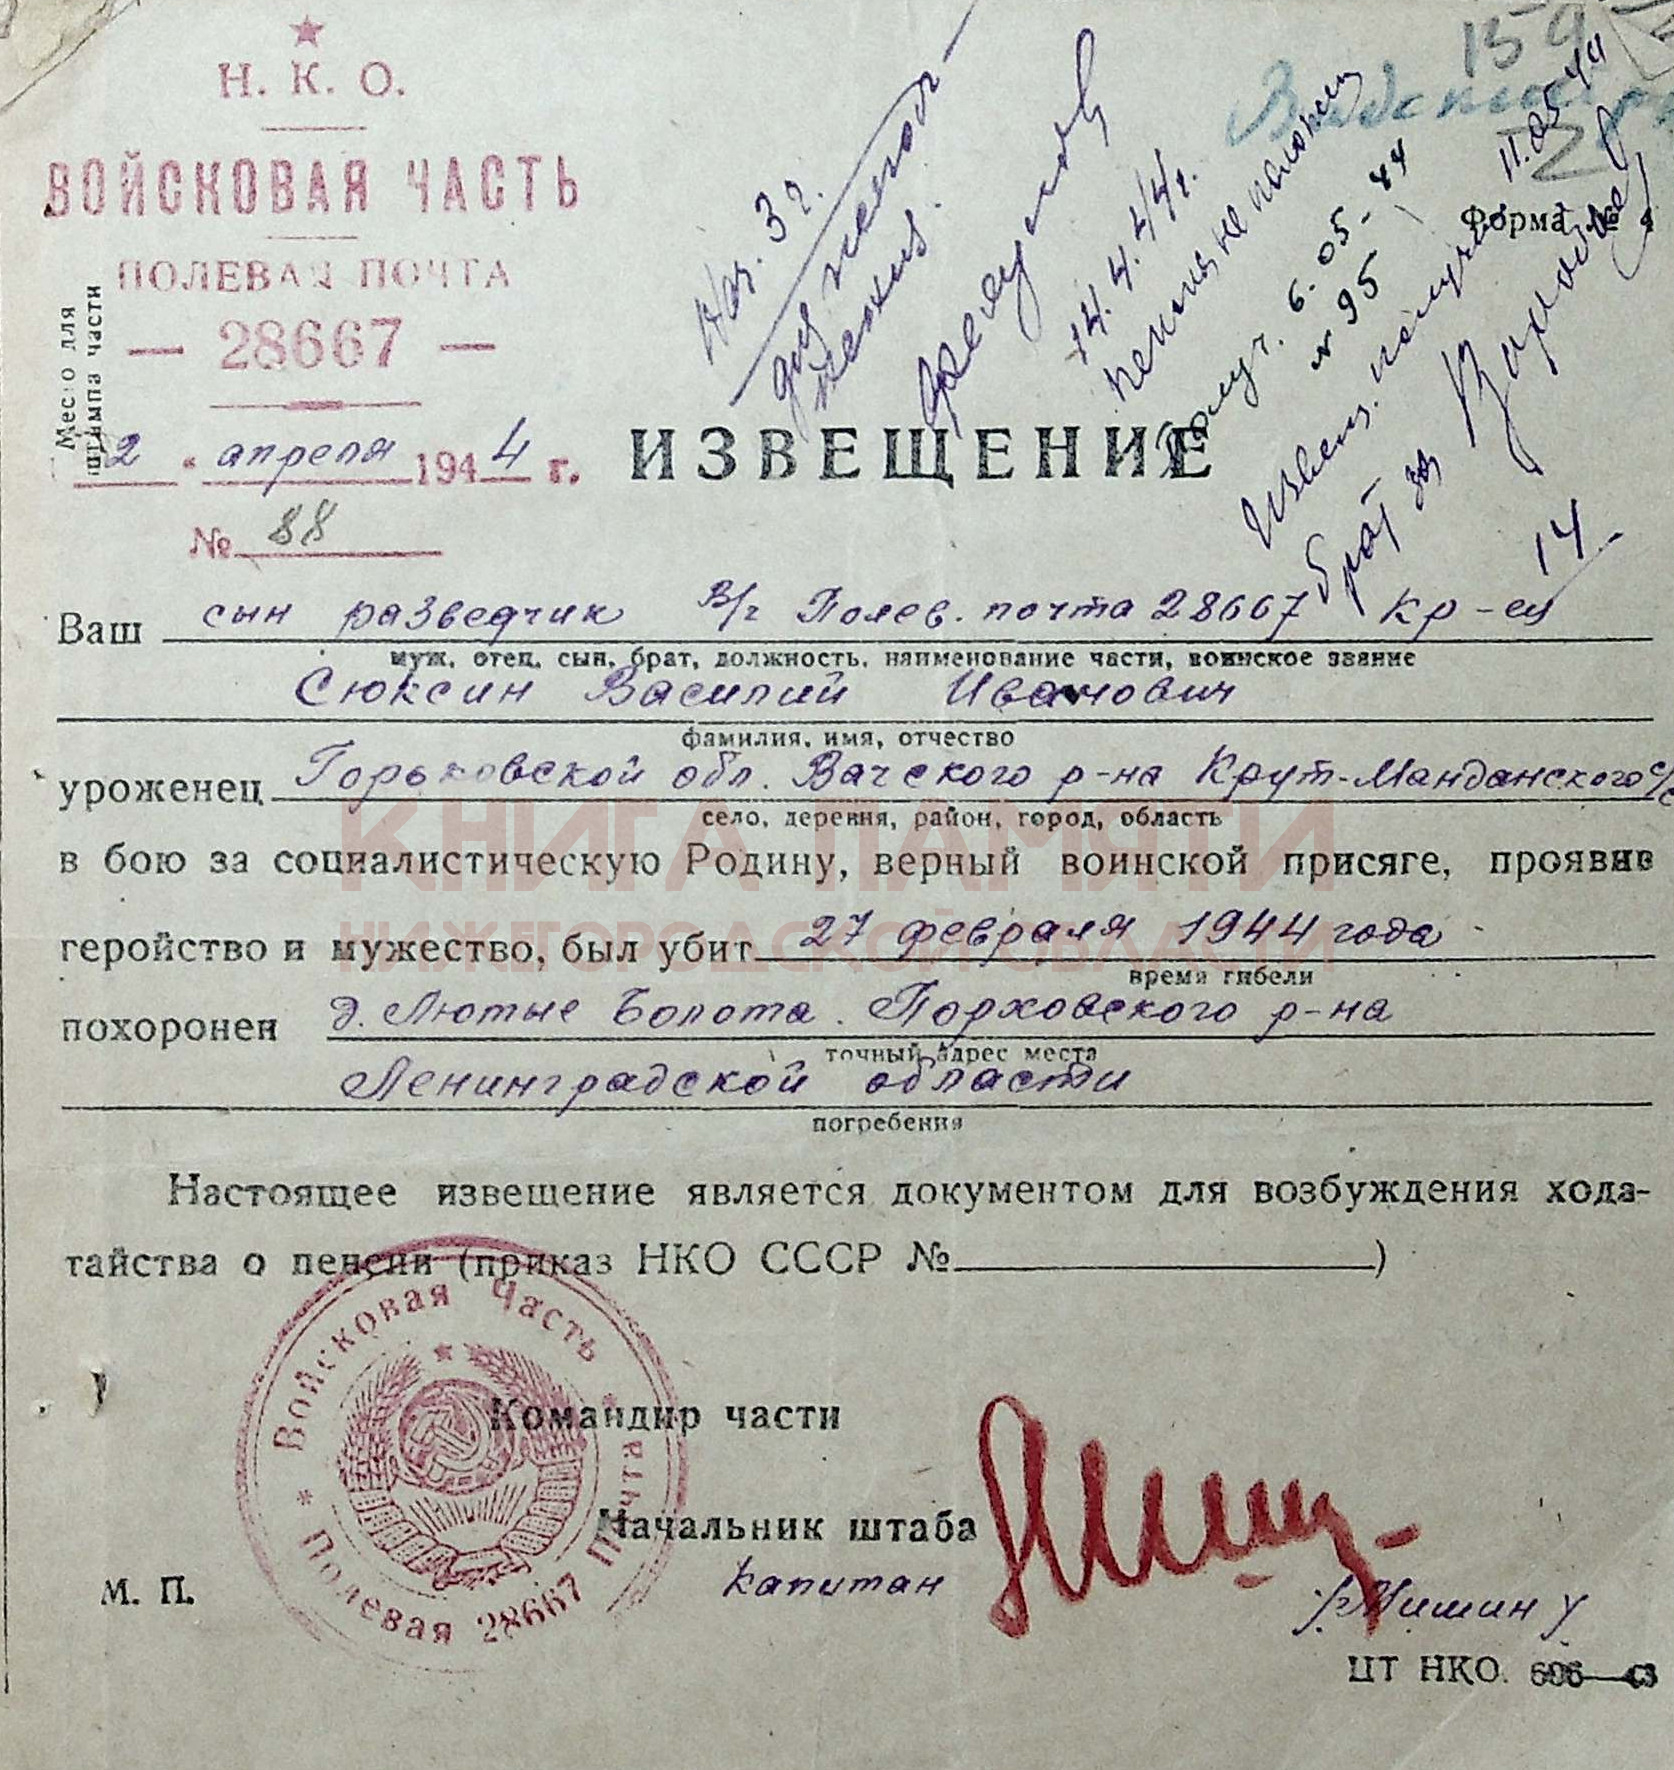 Н. К. О.
ВОЙСКОВАЯ ЧАСТЬ
ПОЛЕВАЯ ПОЧТА
— 28667 —
Место для
штампа части
2 " апреля 1944 г.
№ 88
Нач. 3 ч.
для
14.4.44г.
пенсия не положен
Получ. 6.05-44
№ 95
Извещ. получил 11.05.44
брат за
159
Форма №
14
ИЗВЕЩЕНИЕ
Ваш сын разведчик В/г Полев. почта 28667 кр-ец
муж, отец, сын, брат, должность, наименование части, воинское звание
Сюксин Василий Иванович
фамилия, имя, отчество
уроженец Горьковской обл. Вачского р-на Крут-Манданского с/с
село, деревня, район, город, область
в бою за социалистическую Родину, верный воинской присяге, проявив
геройство и мужество, был убит 27 февраля 1944 года
время гибели
похоронен д. Лютые Болота. Порховского р-на
точный адрес места
Ленинградской области
погребения
Настоящее извещение является документом для возбуждения хода-
тайства о пенсии (приказ НКО СССР № )
Командир части
Начальник штаба
капитан
/Мишин/
М. П.
Войсковая Часть * Полевая Почта 28667 *
ЦТ НКО. 606—43
КНИГА ПАМЯТИ
НИЖЕГОРОДСКОЙ ОБЛАСТИ